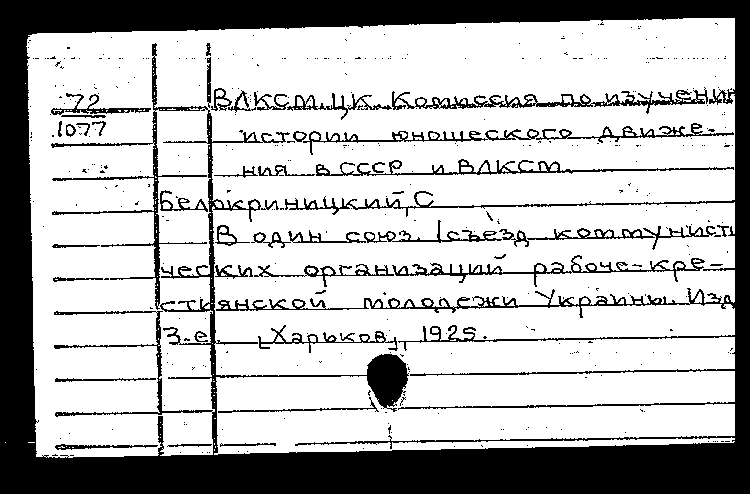 72
1077
ВЛКСМ. ЦК. Комиссия по изучени
истории юношеского движе-
ния в СССР и ВЛКСМ.
Белокриницкий, С
В один союз. I съезд коммунисти
ческих организаций рабоче-кре-
стьянской молодежи Украины. Изд
3-е. [Харьков], 1925.